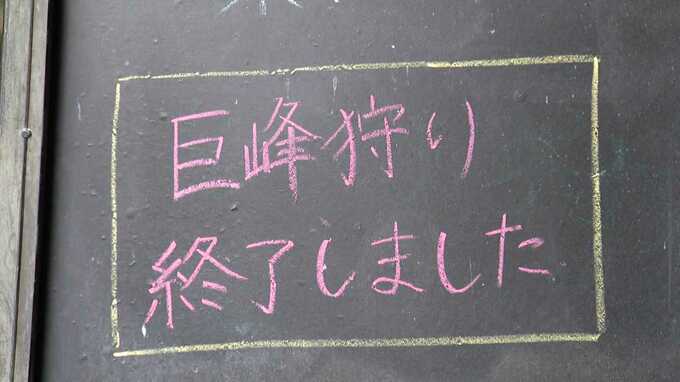 巨峰狩り
終了しました